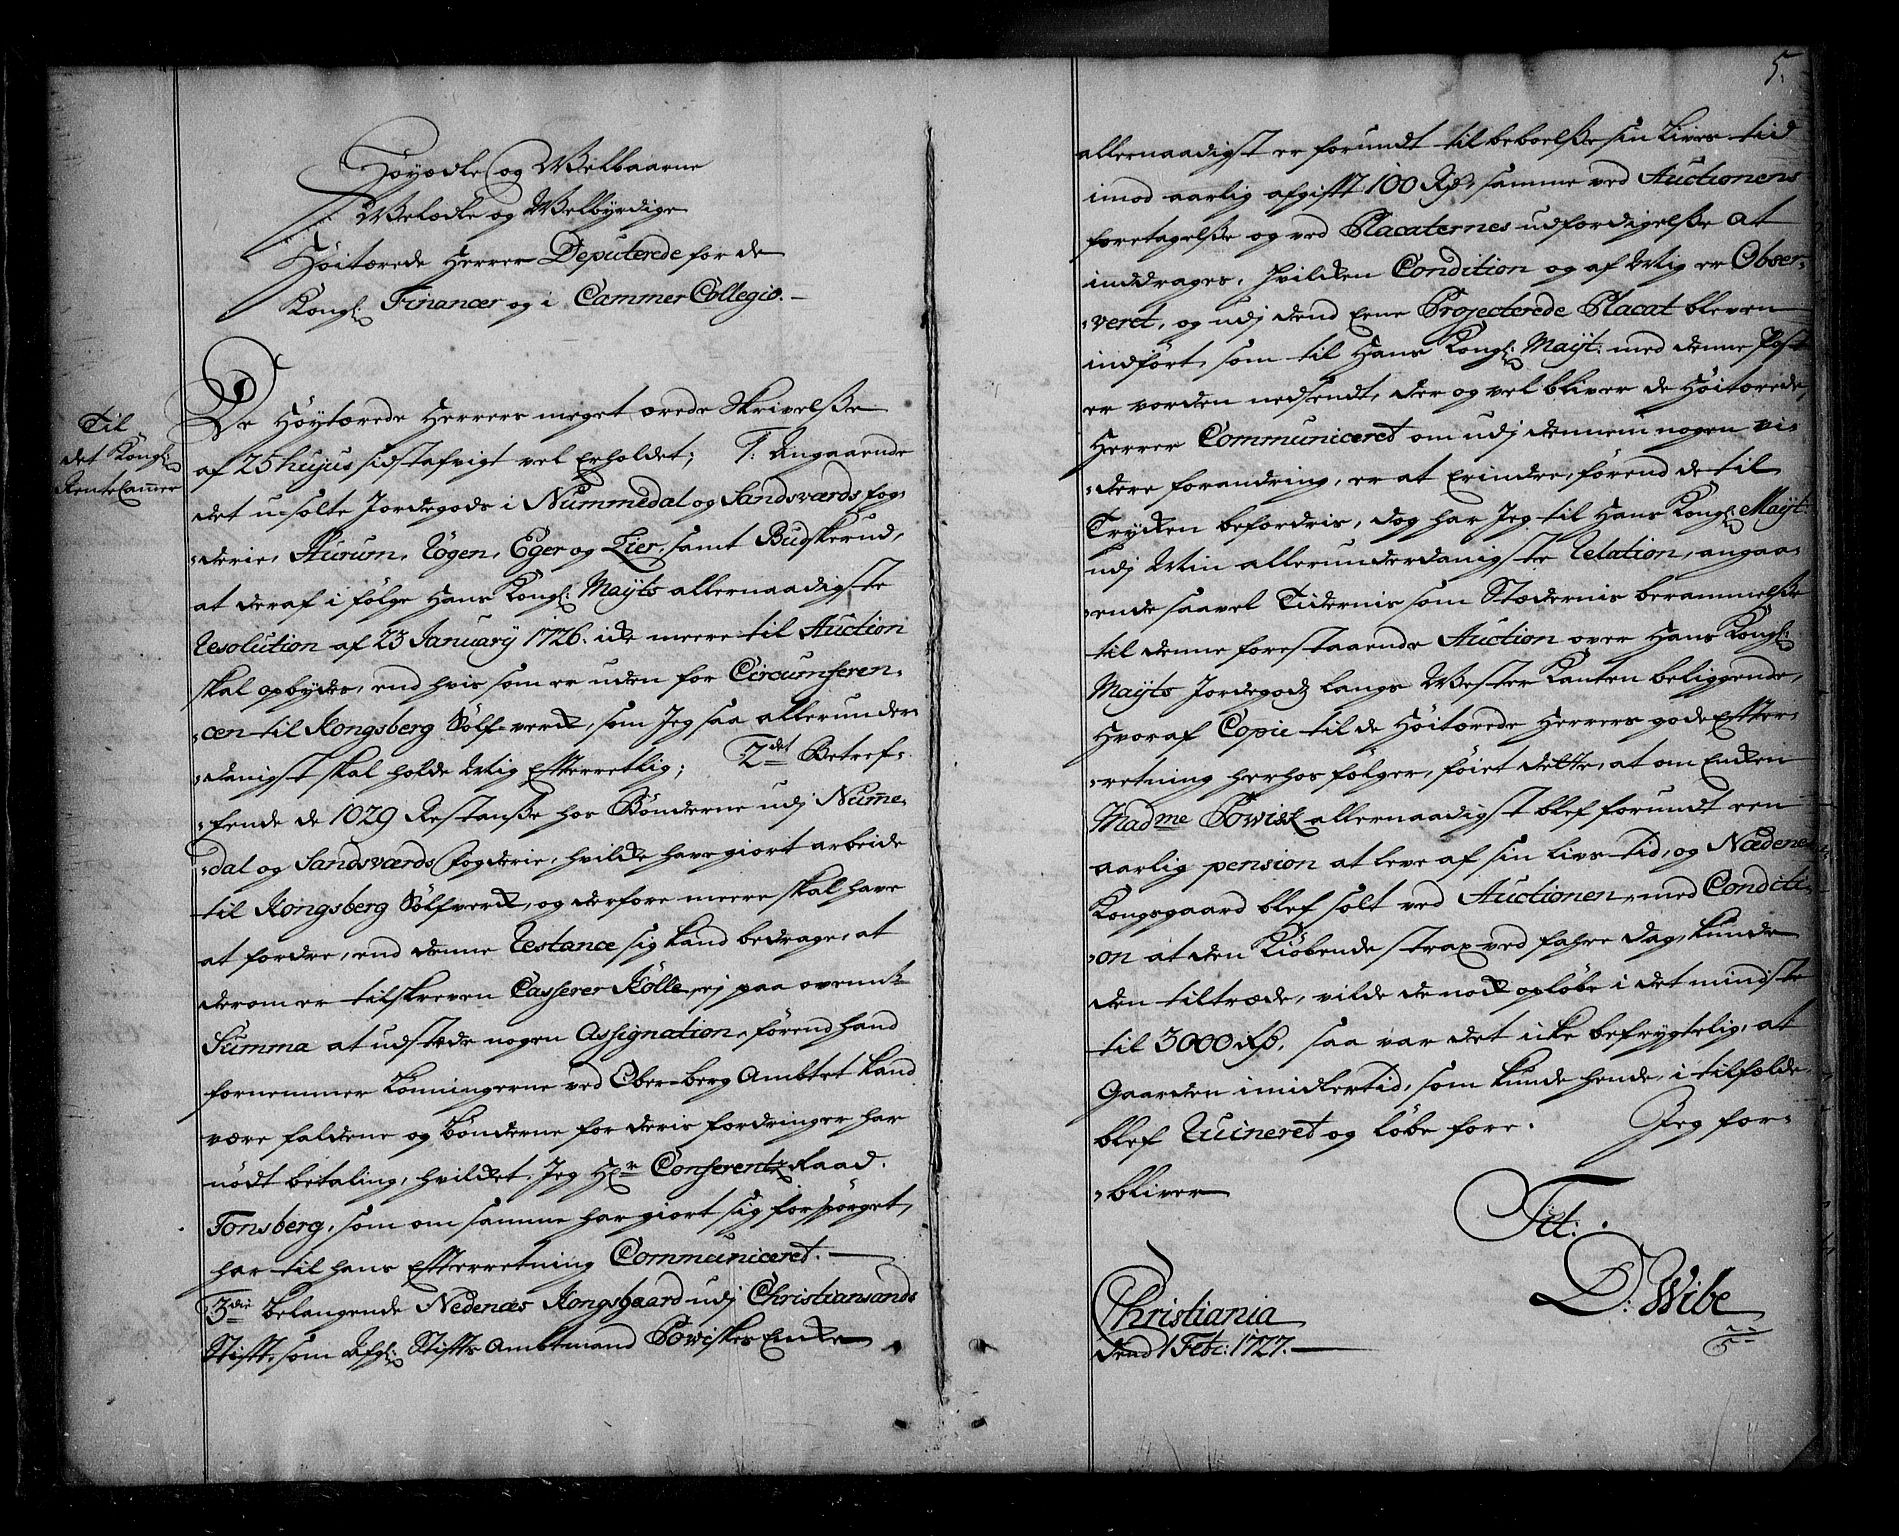 Høyædle og Welbaarne
Welædle og Welbyrdige
Høitærede Herrer Deputerede for de
Kongl: Financer og i Cammer Collegio.-
Til
det Kongl:
Rente Cammer
De Høytærede Herrers meget ærede Skrivelße
af 25 hujus sidstafvigt vel erholdet; 1: Angaaende
det u-solte Jordegods i Nummedal og Sandsværds fog-
-derie, Hurum, Rögen, Eger og Lier, samt Budskerud,
at deraf i følge Hans Kongl: Mayts allernaadigste
Resolution af 23 January 1726. icke meere til Auction
skal opbydes, end hvis som er uden for Circumferen-
-cen til Kongsberg Sölf-verck, som Jeg saa allerunder-
-danigst skal holde Mig Efterretlig; 2det Betref-
-fende de 1029 Restanße hos Bønderne udj Numme-
-dal og Sandsværds fogderie, hvilcke have giort arbeide
til Kongsberg Sölfverck, og derfore meere skal have
at fordre, end denne Restance sig kand bedrage, at
derom er tilskreven Casserer Kölle, ej paa ovennt:
Summa at udstæde nogen Assignation, førend hand
fornemmer Lønningerne ved Ober-berg Ambtet kand
være faldene og Bønderne for deris fordringer har
nødt betaling, hvilcket Jeg Hr Conferentz Raad
Tonsberg, som om samme har giort sig forspørget,
har til hans Efterretning Communiceret.-
3die Belangende Nedenæs Kongsgaard udj Christiansands
Stift, som Afgl: Stifts Ambtmand Powiskes Encke
5.
allernaadigst er forundt til beboelße sin Lives tiid
imod aarlig afgift 100 Rd, samme ved Auctionens
foretagelße og ved Placaternes udferdigelße at
inddrages, hvilcken Condition og af Mig er Obser-
-veret, og udj dend eene Projecterede Placat bleven
indført, som til Hans Kongl: Mayt: med denne Post
er vorden nedsendt, der og vel bliver de Høitærede
Herrer Communiceret om udj dennem nogen vi-
-dere forandring, er at Erindre, førend de til
Trycken befordris, dog har Jeg til Hans Kongl: Mayt:
udj Min allerunderdanigste Relation, angaa-
-ende saavel Tidernis som Stædernis berammelße
til denne forestaaende Auction over Hans Kongl:
Mayts Jordegodz langs Wester Kanten beliggende,
Hvoraf Copie til de Høitærede Herrers gode Efter-
-retning herhos følger, føiet dette, at om Encken
Madme Powisk allernaadigst blef forundt een
aarlig pension at leve af sin livs-tid, og Nædenes
Kongsgaard blef solt ved Auctionen, med Conditi-
-on at den Kiøbende strax ved fahre dag, kunde
den tiltræde, vilde de nock opløbe i det mindste
til 3000 Rd, saa var det icke befrygtelig, at
Gaarden imidlertid, som kunde hende, i tilfælde
blef Ruineret og løbe fore. Jeg for-
-bliver
Tit:
D: Wibe
Christiania
dend 1 Feb: 1727.